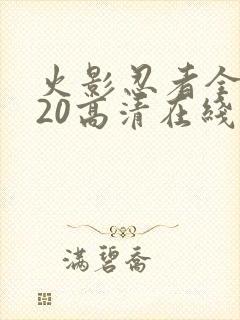 火影忍者全
20高清在线
满碧乔